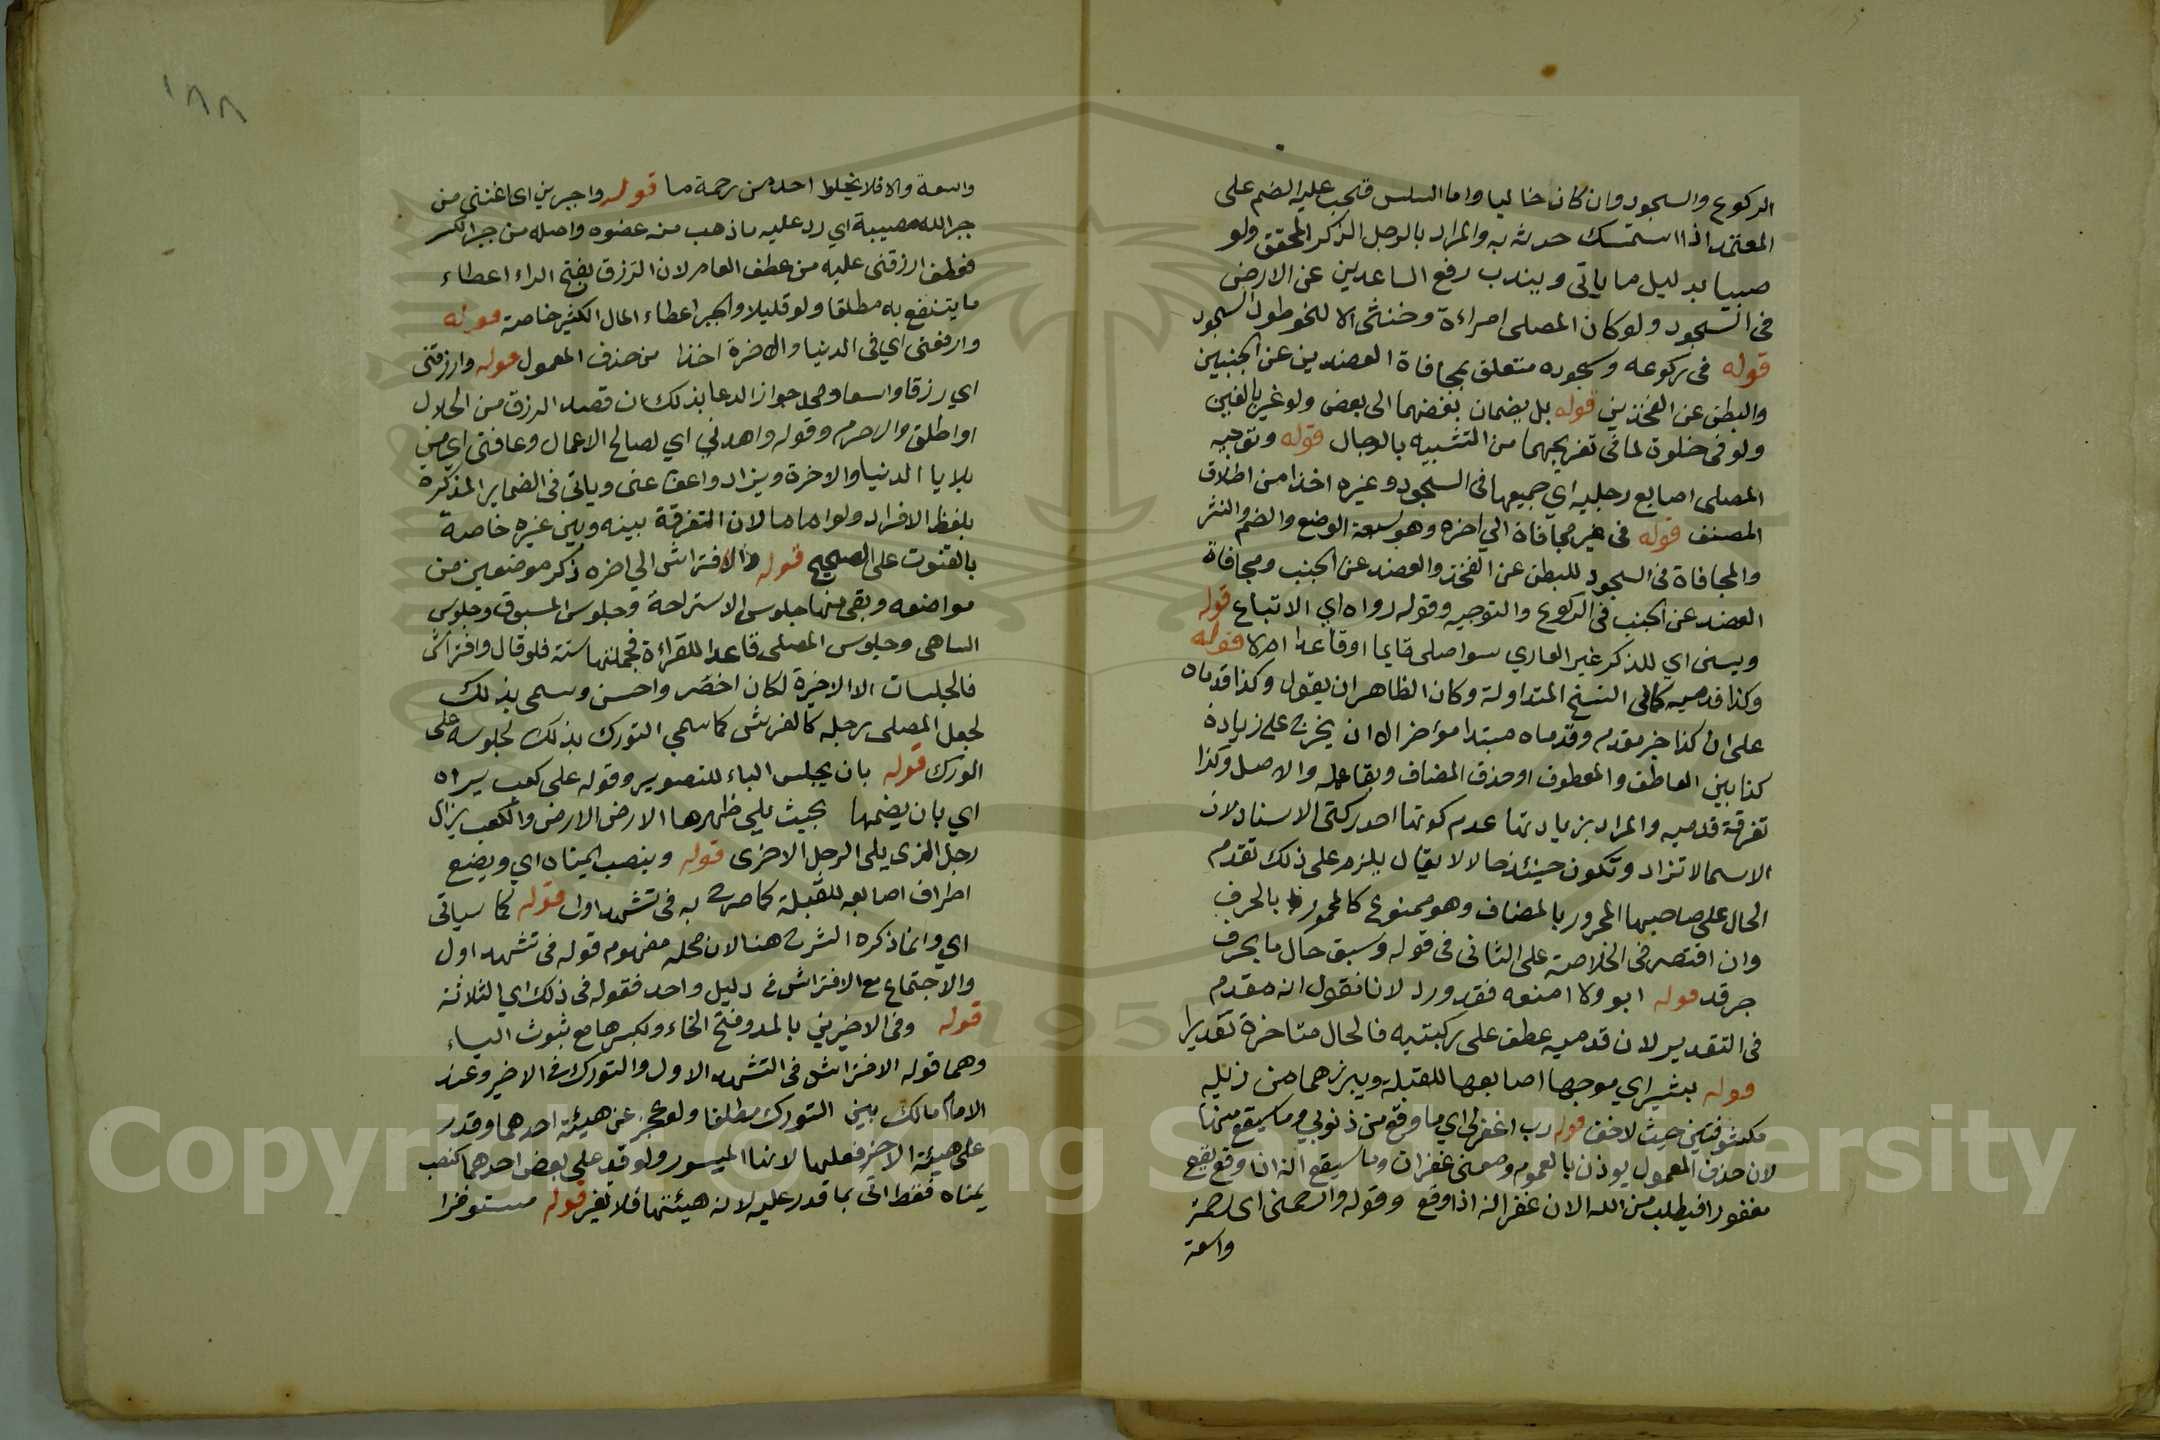 الركوع والسجود وان كان خاليا واما السلس فيجب عليه الضم على
المعتمد اذا استمسك حدثه به والمراد بالرجل الذكر المحقق ولو
صبيا بدليل ما ياتي ويندب رفع الساعدين عن الارض
في السجود ولو كان المصلي امراءة وخنثى الا لنحو طول السجود
قوله في ركوعه وسجوده متعلق بمجافاة العضدين عن الجنبين
والبطن عن الفخذين قوله بل يضمان بعضهما الى بعض ولو غير بالغين
ولو في خلوة لما في تفريجهما من التشبيه بالرجال قوله وتوجيه
المصلي اصابع رجليه اي جميعها في السجود وغيره اخذا من اطلاق
المصنف قوله في غير مجافاة الي اخره وهو تسعة الوضع والضم والنشر
والمجافاة في السجود للبطن عن الفخذ والعضد عن الجنب ومجافاة
العضد عن الجنب في الركوع والتوجيه وقوله رواه اي الاتباع قوله
ويسن اي للذكر غير العاري سوا صلى قايما او قاعدا ام لا قوله
وكذا قدميه كما في النسخ المتداولة وكان الظاهر ان يقول وكذا قدماه
على ان كذا خبر مقدم وقدماه مبتدا مؤاخر الا ان يخرج على زيادة
كذا بين العاطف والمعطوف او حذف المضاف وبقا عمله والاصل وكذا
تفرقة قدميه والمراد بزيادتها عدم كونها احد ركني الاسناد لان
الاسما لا تزاد وتكون حينئذ حالا لا يقال يلزم على ذلك تقدم
الحال على صاحبها المجرور بالمضاف وهو ممنوع كالمجرور بالحرف
وان اقتصر في الخلاصة على الثاني في قوله وسبق حال ما بحرف
جر قد قوله ابو ولا امنعه فقد ورد لانا نقول انه مقدم
في التقدير لان قدميه عطف على ركبتيه فالحال متاخرة تقديرا
قوله بنشر اي موجها اصابعها للقبلة ويبرزهما من ذيله
مكشوفتين حيث لا خف قوله رب اغفرلي اي ما وقع من ذنوبي وما سيقع منها
لان حذف المعمول يوذن بالعموم ومعنى غفران ما سيقع انه اذا وقع يقع
مغفورا فيطلب من الله الان غفرانه اذا وقع وقوله وارحمني اي رحمة
واسعة
١٨٨
واسعة والا فلا يخلوا احد من رحمة ما قوله واجبرني اي اغنني من
جبر الله مصيبة اي رد عليه ما ذهب منه عضوه واصله من جبر الكسر
فعطف ارزقني عليه من عطف العام لان الرزق بفتح الراء اعطاء
ما ينتفع به مطلقا ولو قليلا والجبر اعطاء المال الكثير خاصة قوله
وارفعني اي في الدنيا والاخرة اخذا من حذف المعمول قوله وارزقني
اي رزقا واسعا ومحل جواز الدعا بذلك ان قصد الرزق من الحلال
او اطلق والا حرم وقوله واهدني اي لصالح الاعمال وعافني اي من
بلايا الدنيا والاخرة ويزاد واعف عني وياتي في الضماير المذكورة
بلفظ الافراد ولو اماما لان التفرقة بينه وبين غيره خاصة
بالقنوت على الصحيح قوله والافتراش الي اخره ذكر موضعين من
مواضعه وبقي منها جلوس الاستراحة وجلوس المسبوق وجلوس
الساهي وجلوس المصلي قاعدا للقراءة فجملتها ستة فلو قال وافتراش
فالجلسات الا الاخيرة لكان اخصر واحسن وسمي بذلك
لجعل المصلي رجله كالفرش كما سمي التورك بذلك لجلوسه على
الورك قوله بان يجلس الباء للتصوير وقوله على كعب يسراه
اي بان يضمها بحيث يلي ظهرها الارض الارض والكعب يزال
رجل الذي يلي الرجل الاخرى قوله وينصب يمناه اي ويضع
اطراف اصابعه للقبلة كما صرح به في تشهد اول قوله كما سياتي
اي وانما ذكره الشرح هنا لان محله مفهوم قوله في تشهد اول
والاجتماع مع الافتراش في دليل واحد فقوله في ذلك اي الثلاثة
قوله وفي الاخيرين بالمد وفتح الخاء وكسرها مع ثبوث الياء
وهما قوله الافتراش في التشهد الاول والتورك في الاخير وعند
الامام مالك بين التورك مطلقا ولو عجز عن هيئة احدهما وقدر
على هيئة الاخر فعليها لانها الميسور ولو قدر على بعض احدهما كنصب
يمناه فقط اتى بما قدر عليه لانه هيئتها فلا تغير قوله مستوفزا